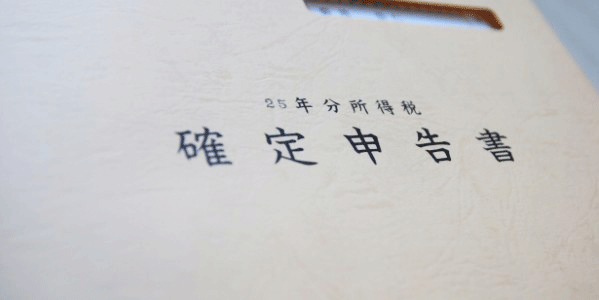 25年分所得税
確定申告書